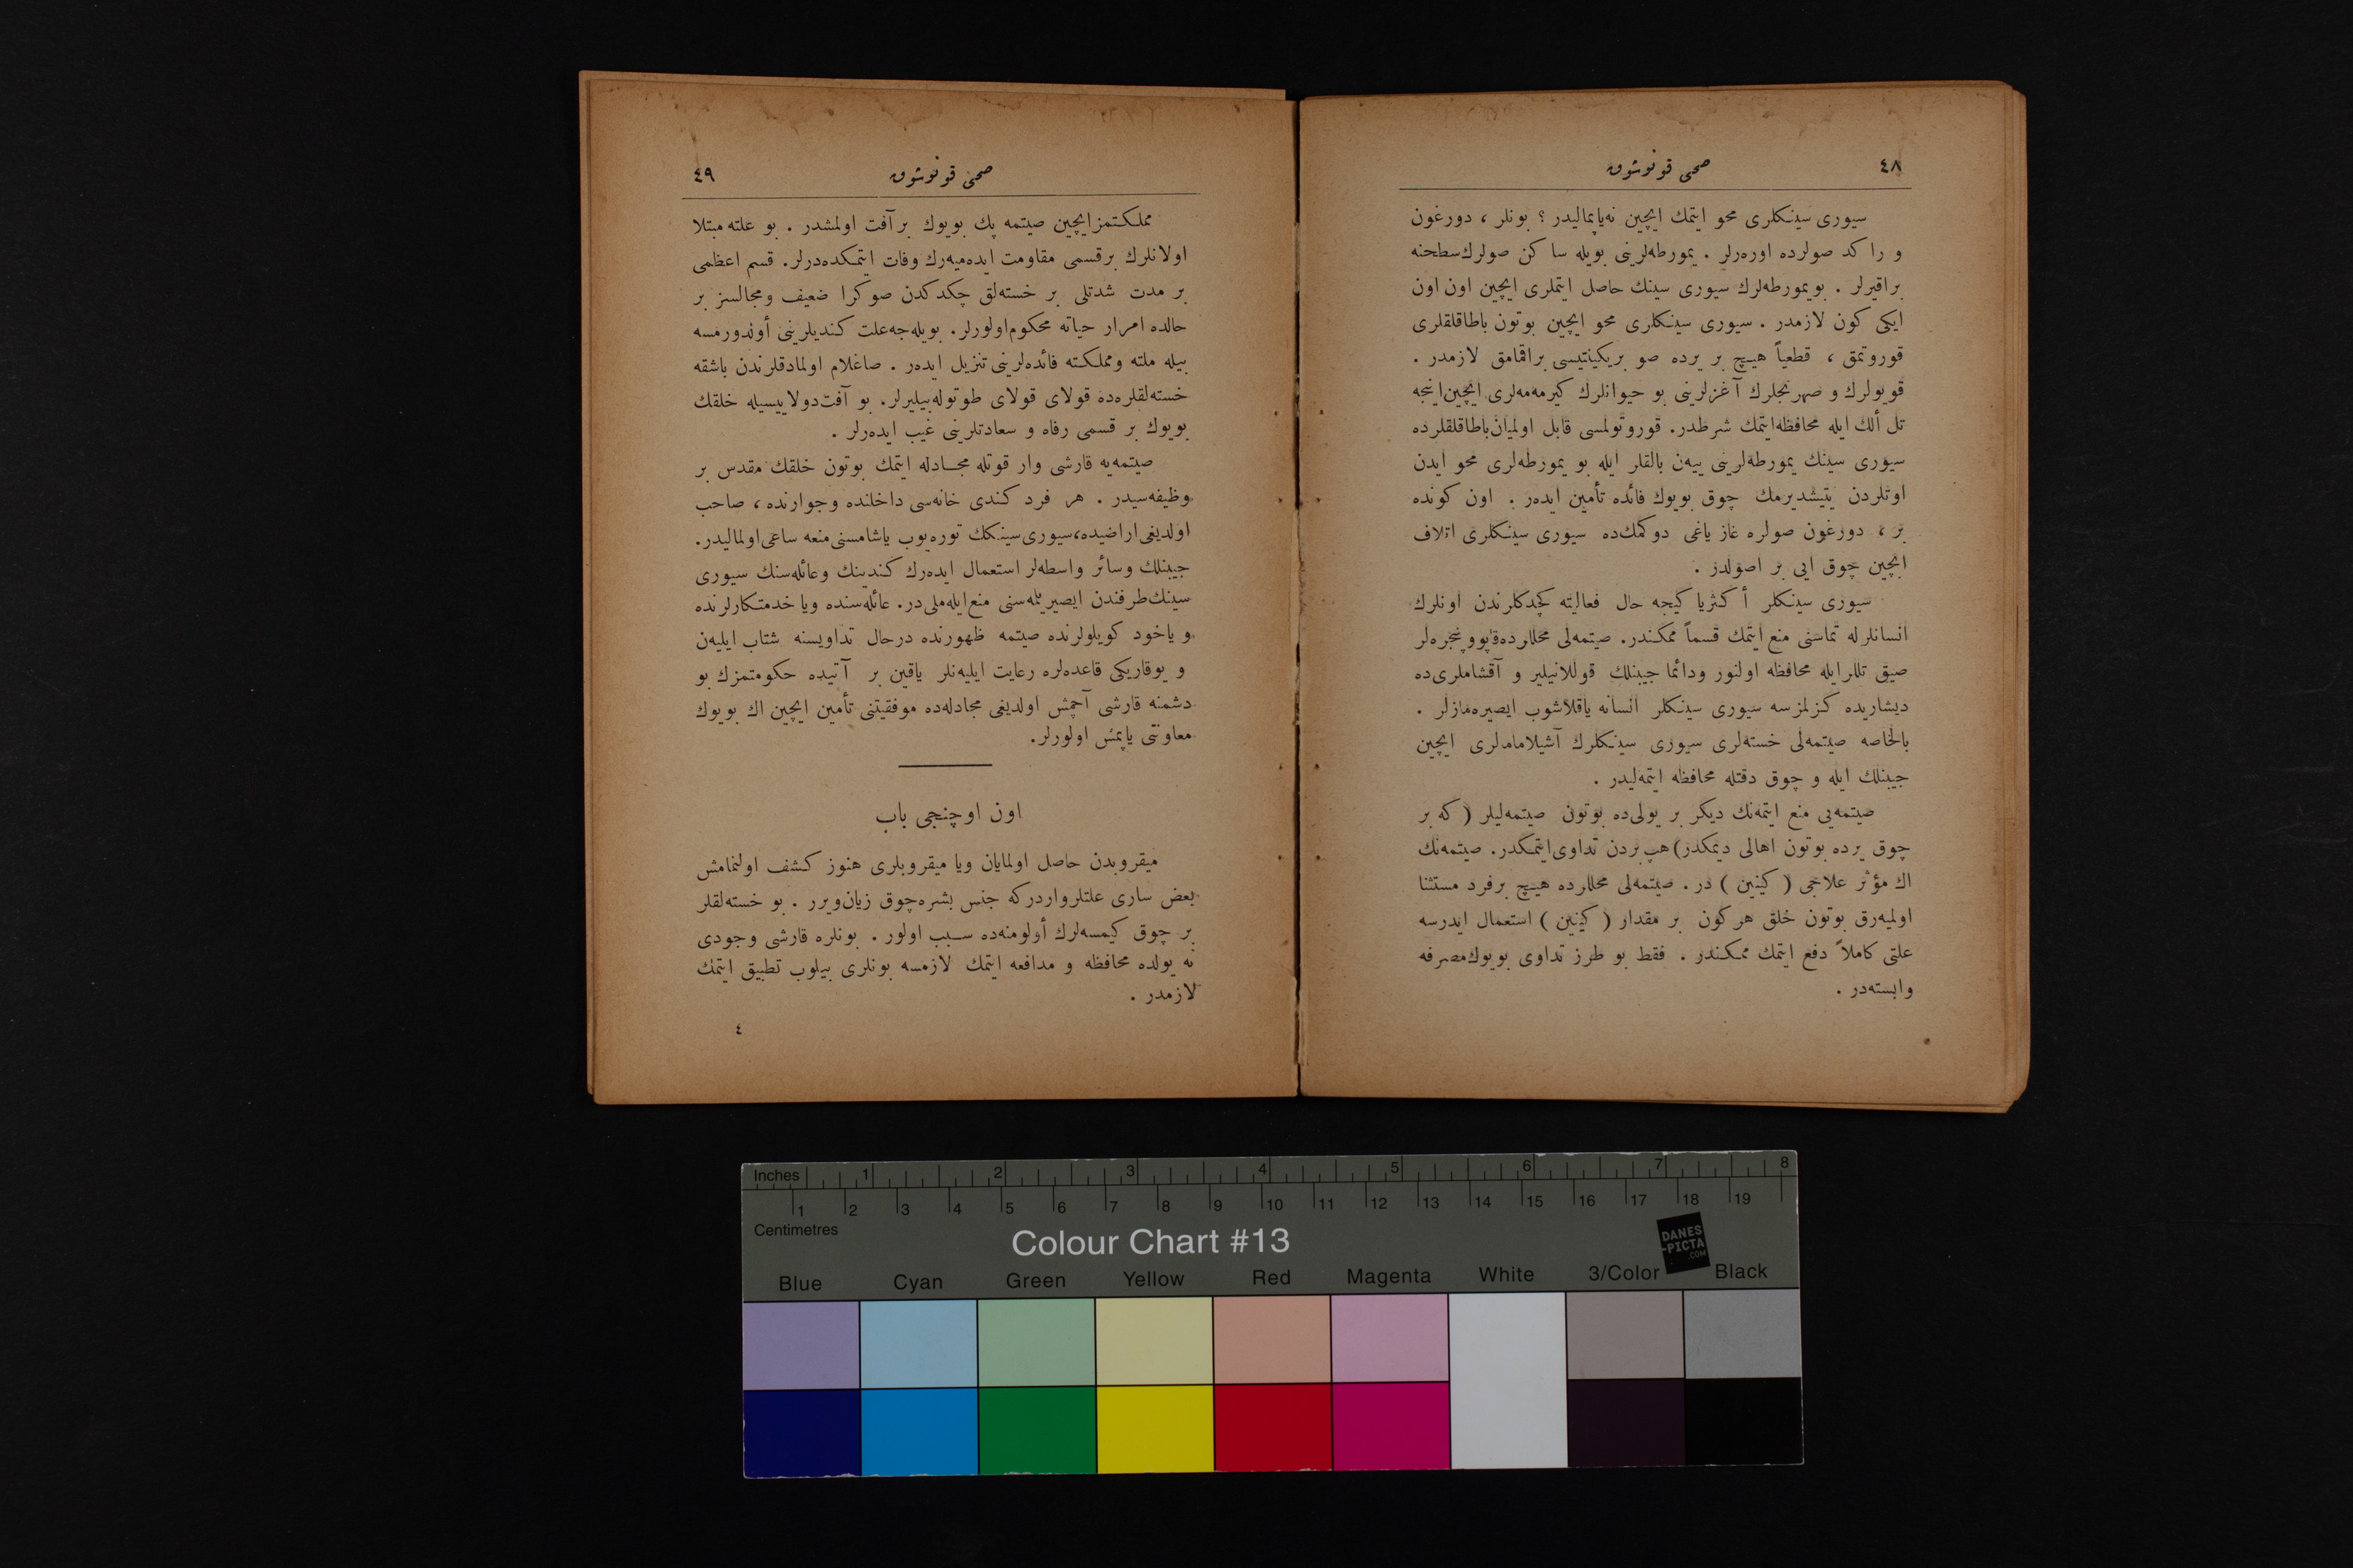 ٤٨
صحی قونوشوق
سیوری سینکلری محو ایتمك ایچین نه‌یاپمالیدر ؟ بونلر ، دورغون
و راکد صولرده اوره‌رلر . یمورطه‌لرینی بویله ساکن صولرك سطحنه
براقیرلر . بویمورطه‌لرك سیوری سینك حاصل ایتملری ایچین اون اون
ایکی کون لازمدر . سیوری سینکلری محو ایچین بوتون باطاقلقلری
قوروتمق ، قطعیاً هیچ بر یرده صو بریکینتیسی براقمامق لازمدر .
قویولرك و صهرنجلرك آغزلرینی بو حیوانلرك کیرمه‌مه‌لری ایچین اینجه
تل ألك ایله محافظه ایتمك شرطدر. قوروتولمسی قابل اولمیان باطاقلقلرده
سیوری سینك یمورطه‌لرینی ییه‌ن بالقلر ایله بو یمورطه‌لری محو ایدن
اوتلردن یتیشدیرمك چوق بویوك فائده تأمین ایده‌ر . اون کونده
بر ، دورغون صولره غاز یاغی دوکمك‌ده سیوری سینکلری اتلاف
ایچین چوق ایی بر اصولدر .
سیوری سینکلر أکثریا کیجه حال فعالیته کچدکلرندن اونلرك
انسانلرله تماسنی منع ایتمك قسماً ممکندر. صیتمه‌لی محللرده قاپو و پنجره‌لر
صیق تللر ایله محافظه اولنور ودائما جیبنلك قوللانیلیر و آقشاملری‌ده
دیشاریده کزلمزسه سیوری سینکلر انسانه یاقلاشوب ایصیره‌مازلر .
بالخاصه صیتمه‌لی خسته‌لری سیوری سینکلرك آشیلامامالری ایچین
جیبنلك ایله و چوق دقتله محافظه ایتمه‌لیدر .
صیتمه‌یی منع ایتمه‌نك دیکر بر یولی‌ده بوتون صیتمه‌لیلر ( که بر
چوق یرده بوتون اهالی دیمکدر) هپ بردن تداوی ایتمکدر. صیتمه‌نك
اك مؤثر علاجی ( کینین ) در . صیتمه‌لی محللرده هیچ بر فرد مستثنا
اولمیه‌رق بوتون خلق هر کون بر مقدار ( کینین ) استعمال ایدرسه
علتی کاملاً دفع ایتمك ممکندر . فقط بو طرز تداوی بویوك مصرفه
وابسته‌در .
صحی قونوشوق
٤٩
مملکتمز ایچین صیتمه پك بویوك بر آفت اولمشدر . بو علته مبتلا
اولانلرك برقسمی مقاومت ایده‌میه‌رك وفات ایتمکده‌درلر. قسم اعظمی
بر مدت شدتلی بر خسته‌لق چکدکدن صوکرا ضعیف ومجالسز بر
حالده امرار حیاته محکوم اولورلر. بویله‌جه علت کندیلرینی أولدورمسه
بیله ملته ومملکته فائده‌لرینی تنزیل ایده‌ر . صاغلام اولمادقلرندن باشقه
خسته‌لقلره‌ده قولای قولای طوتوله‌بیلیرلر. بو آفت دولاییسیله خلقك
بویوك بر قسمی رفاه و سعادتلرینی غیب ایده‌رلر .
صیتمه‌یه قارشی وار قوتله مجادله ایتمك بوتون خلقك مقدس بر
وظیفه‌سیدر . هر فرد کندی خانه‌سی داخلنده وجوارنده ، صاحب
اولدیغی اراضیده، سیوری سینکك توره‌یوب یاشامسنی منعه ساعی اولمالیدر.
جیبنلك وسائر واسطه‌لر استعمال ایده‌رك کندینك وعائله‌سنك سیوری
سینك طرفندن ایصیریلمه‌سنی منع ایله‌ملی‌در. عائله‌سنده ویا خدمتکارلرنده
و یاخود کویلولرنده صیتمه ظهورنده درحال تداویسنه شتاب ایلیه‌ن
و یوقاریکی قاعده‌لره رعایت ایلیه‌نلر یاقین بر آتیده حکومتمزك بو
دشمنه قارشی آچمش اولدیغی مجادله‌ده موفقیتنی تأمین ایچین اك بویوك
معاونتی یاپمش اولورلر.
اون اوچنجی باب
میقروبدن حاصل اولمایان ویا میقروبلری هنوز کشف اولنمامش
بعض ساری علتلر واردرکه جنس بشره چوق زیان ویرر . بو خسته‌لقلر
بر چوق کیمسه‌لرك أولومنه‌ده سبب اولور . بونلره قارشی وجودی
نه یولده محافظه و مدافعه ایتمك لازمسه بونلری بیلوب تطبیق ایتمك
لازمدر .
٤
Inches 1 2 3 4 5 6 7 8
1 2 3 4 5 6 7 8 9 10 11 12 13 14 15 16 17 18 19
Centimetres
Colour Chart #13
DANES
-PICTA
.COM
Blue Cyan Green Yellow Red Magenta White 3/Color Black